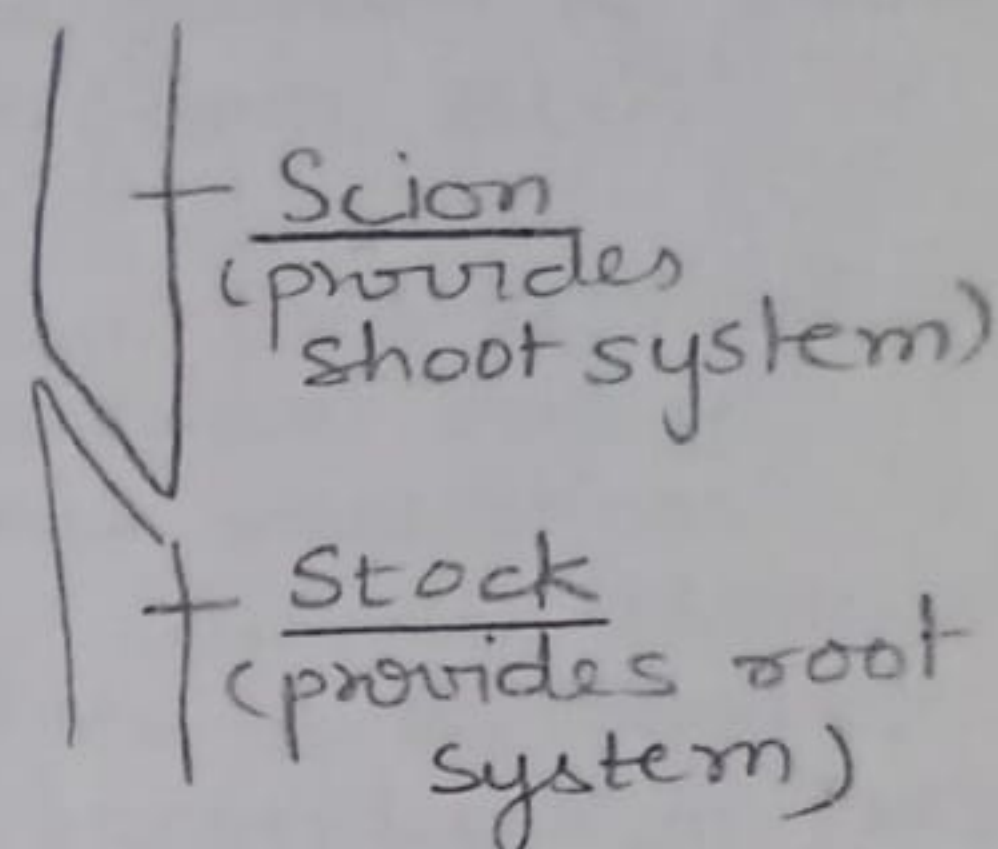 Scion
(provides
shoot system)
Stock
(provides root
system)